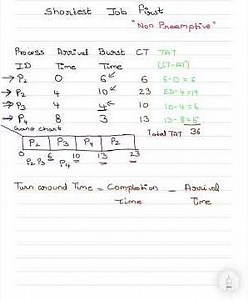 Shortest Job First
"Non Preemptive"
Process Arrival Burst CT TAT
ID Time Time (CT-AT)
→ P1 0 6 6 6-0=6
→ P2 4 10 23 23-4=19
→ P3 4 4 10 10-4=6
→ P4 8 3 13 13-8=5
Gantt chart
Total TAT 36
P1 P3 P4 P2
0 6 10 13 23
P2 P3 P4
Turn around Time = Completion - Arrival
Time Time